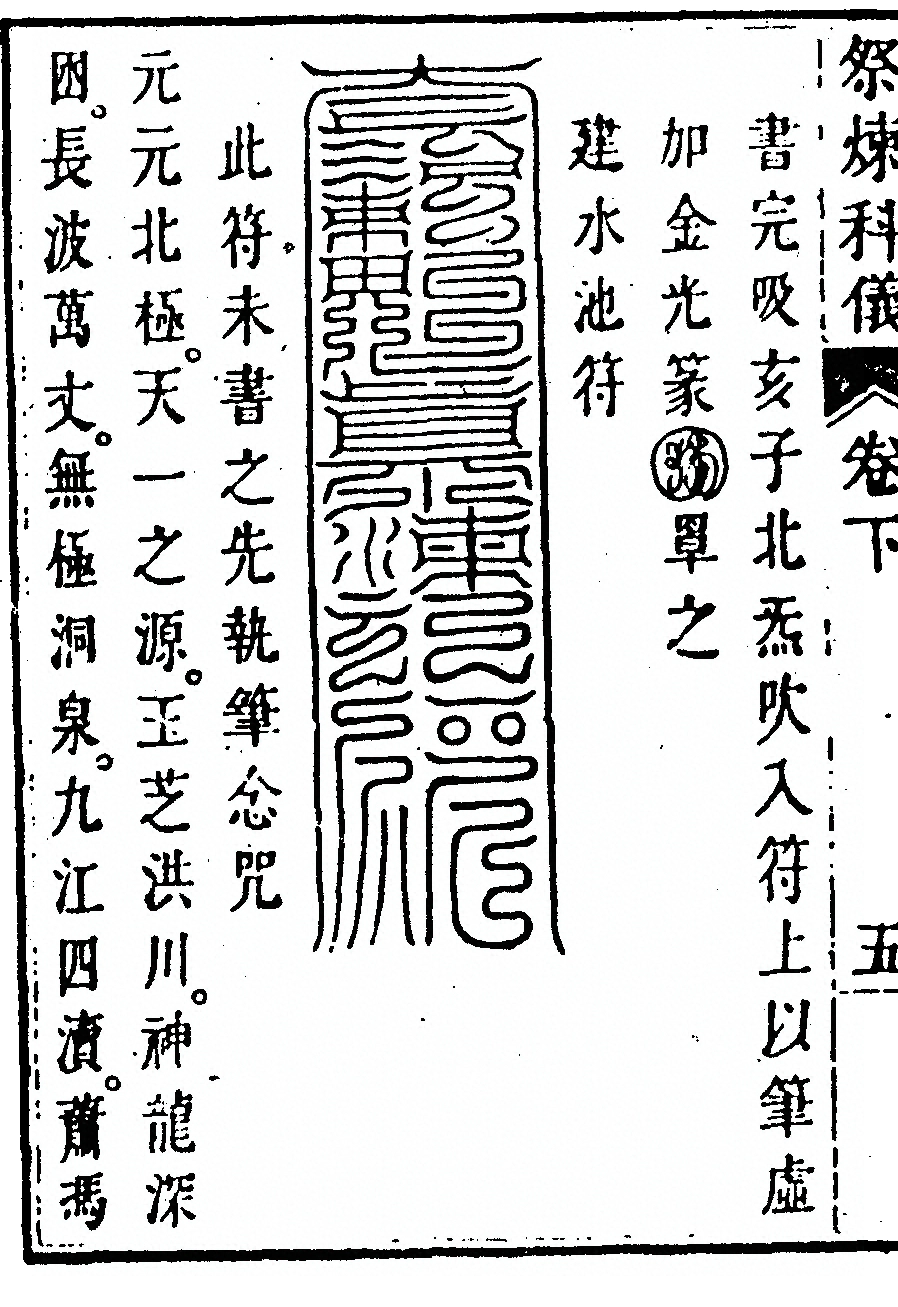 祭煉科儀 卷下 五
書完吸亥子北炁吹入符上以筆虛
加金光篆罩之
建水池符
此符未書之先執筆念咒
元元北極。天一之源。玉芝洪川。神龍深
困。長波萬丈。無極洞泉。九江四瀆。蕭瑪